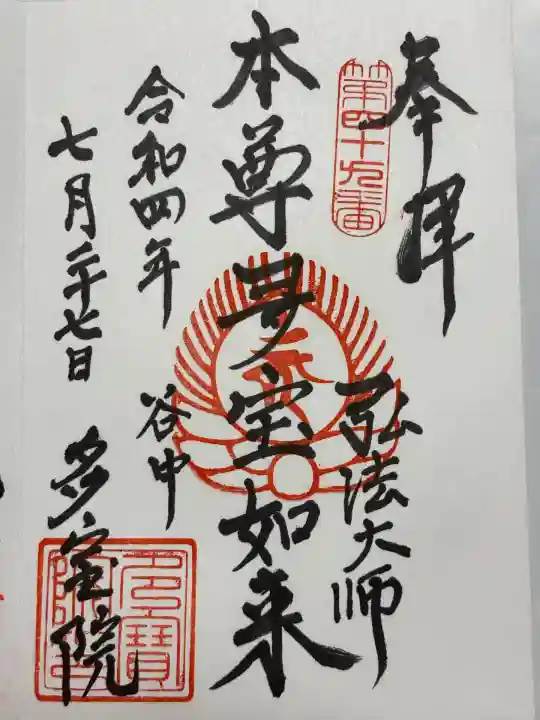 奉拝
第四十九番
弘法大師
本尊多宝如来
令和四年
谷中
七月二十七日
多宝院
多寶院